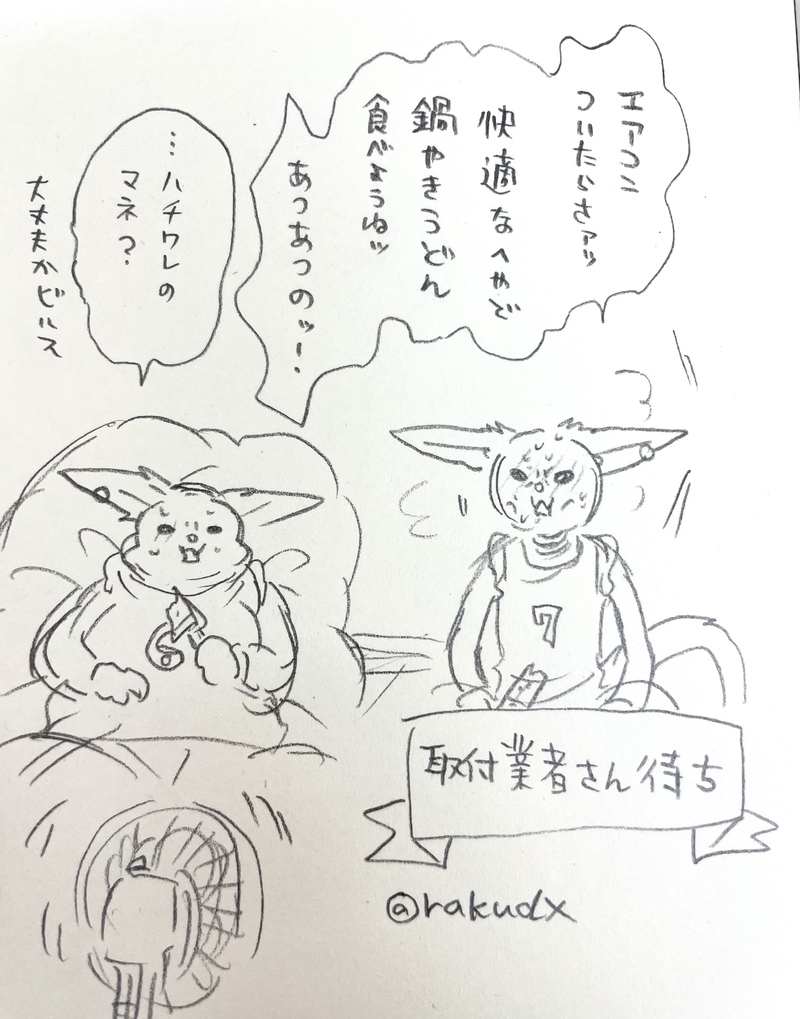 エアコン
ついたらさァッ
快適なへやで
鍋やきうどん
食べようねッ
あつあつのッ!
…ハチワレの
マネ?
大丈夫かビルス
7
取付業者さん待ち
@rakudx